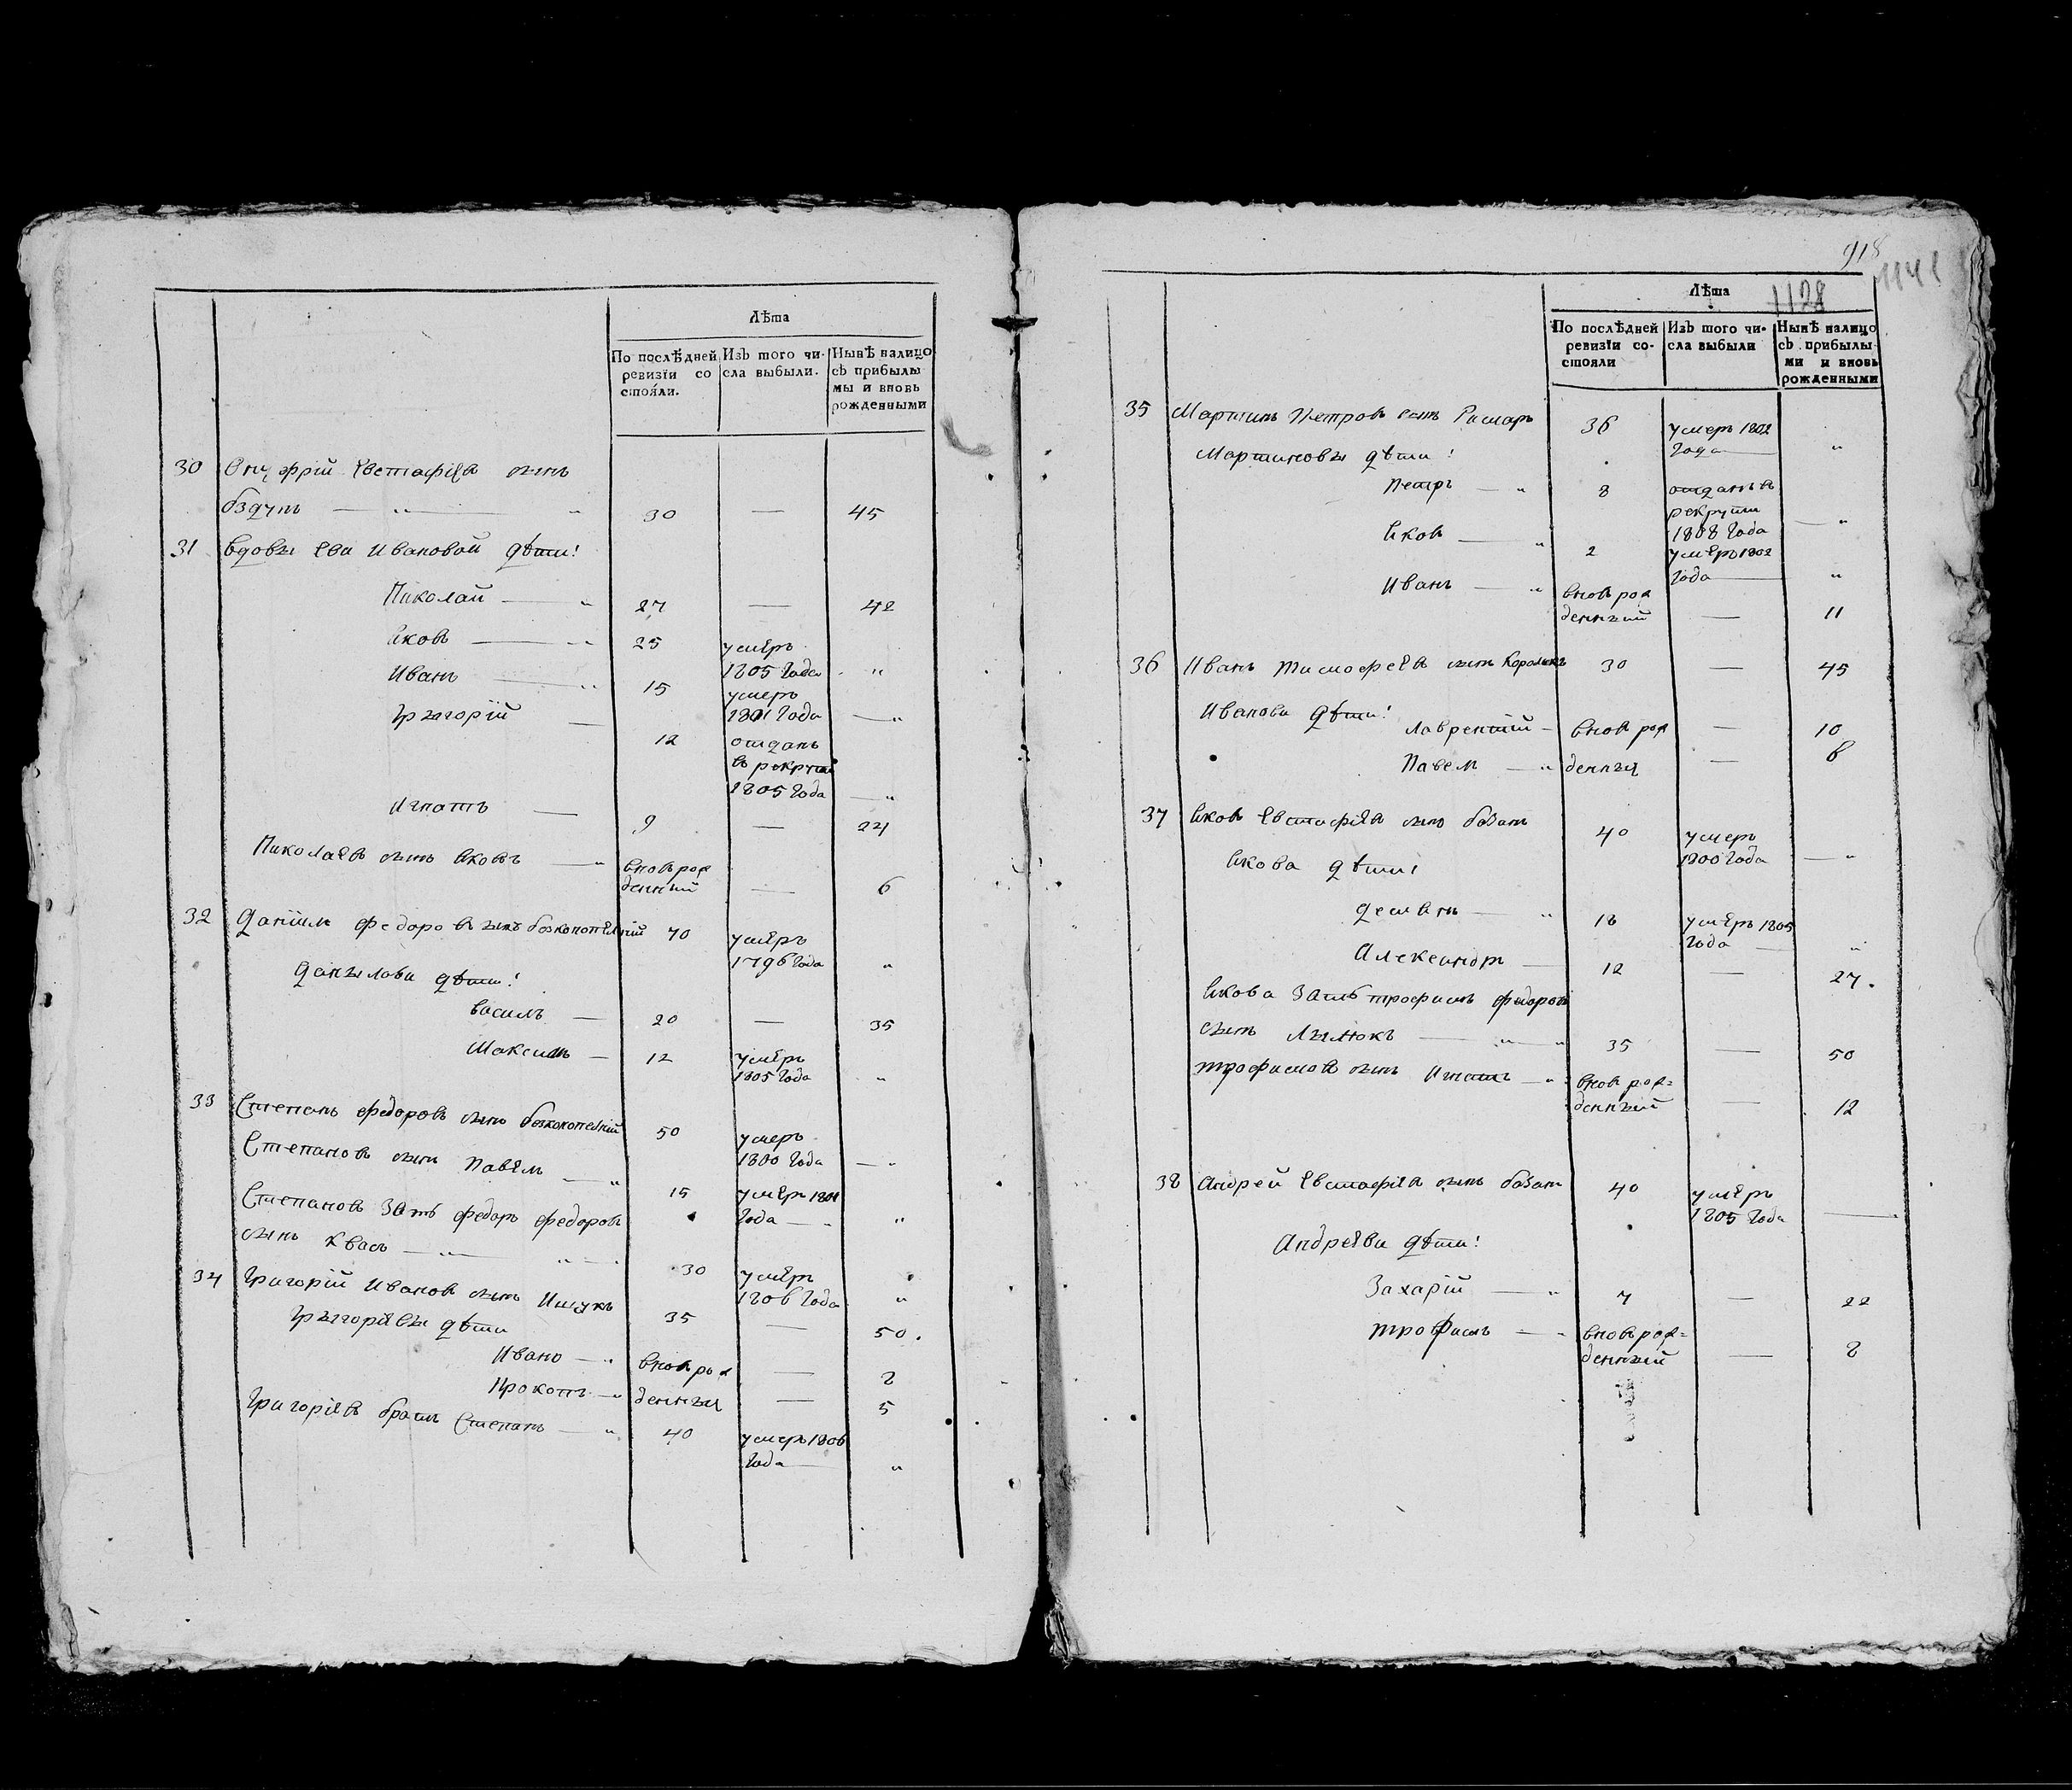 Лѣта
По послѣдней ревизїи со стояли.
Изъ того числа выбыли.
Нынѣ налицо съ прибылы мы и вновь рожденными
30 Онуфрїй Евстафіевъ сынъ
бздунъ — „ — „ 30 — 45
31 Вдовы Еви Ивановой дѣти:
Николай — „ 27 — 42
Яковъ — „ 25 умеръ 1805 года „
Иванъ — „ 15 умеръ 1801 года — „
Грыгорїй — 12 отданъ въ рекруты 1805 года — „
Игнатъ — 9 — 24
Николаевъ сынъ Яковъ — „ вновь рожденный — 6
32 Данїилъ Федоровъ сынъ 70 умеръ 1796 года „
Данылови дѣти:
Василь — 20 — 35
Максимъ — 12 умеръ 1805 года „
33 Степанъ Федоровъ сынъ 50 умеръ 1800 года — „
Степановъ сынъ Павелъ — „ 15 умеръ 1801 года — „ „
Степановъ Зять Федоръ Федоровъ
сынъ Квасъ — „ — „ 30 умеръ 1806 года „
34 Григорїй Ивановъ сынъ Ищукъ 35 — 50.
Грыгорїевы дѣти
Иванъ — „ вновь рож — 8
Прокопъ — „ денныя — 5
Григорїевъ братъ Степанъ — „ 40 умеръ 1806 года — „
918
1141
1128
Лѣта
По послѣдней ревизїи состояли
Изъ того числа выбыли
Нынѣ налицо съ прибылыми и вновь рожденными
35 Мартинъ Петровъ сынъ Римаръ 36 умеръ 1802 года — „
Мартиновы дѣти:
Петръ — „ 8 отданъ в рекруты 1808 года — „
Яковъ — „ 2 умеръ 1802 года — „
Иванъ — „ вновь рожденный — 11
36 Иванъ Тимофеевъ сынъ 30 — 45
Иванови дѣти:
Лаврентїй — вновь рож — 10
Павелъ — „ денныя — 8
37 Яковъ Евстафїевъ сынъ бабанъ 40 умеръ 1800 года — „
Якова дѣти:
Демянъ — „ 18 умеръ 1805 года — „
Александръ — 12 — 27.
Якова Зять Трофимъ Федоровъ
сынъ Лымокъ — „ — „ 35 — 50
Трофимовъ сынъ Игнатъ — „ вновь рожденный — 12
38 Андрей Евстафїевъ сынъ бабанъ 40 умеръ 1805 года —
Андреєви дѣти:
Захарїй — „ 7 — 22
Трофимъ — „ вновь рожденный — 8